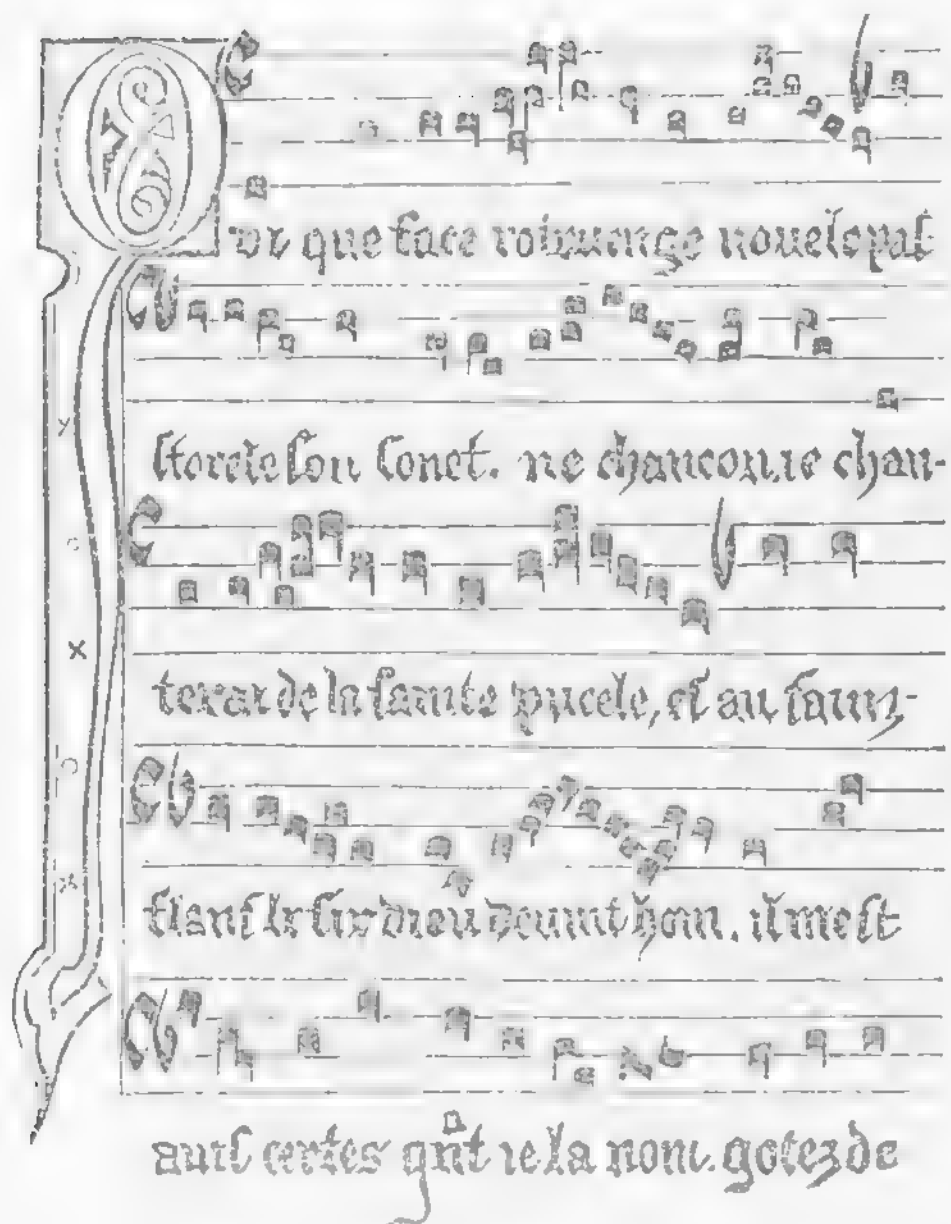 Qui que face rotruenge nouele pas
storele son sonet. ne chancon. ie chan-
terai de la sainte pucele, el cui sainz
flans le fix dieu deuint hom. il mest
auis certes qñt ie la nom. gotez de